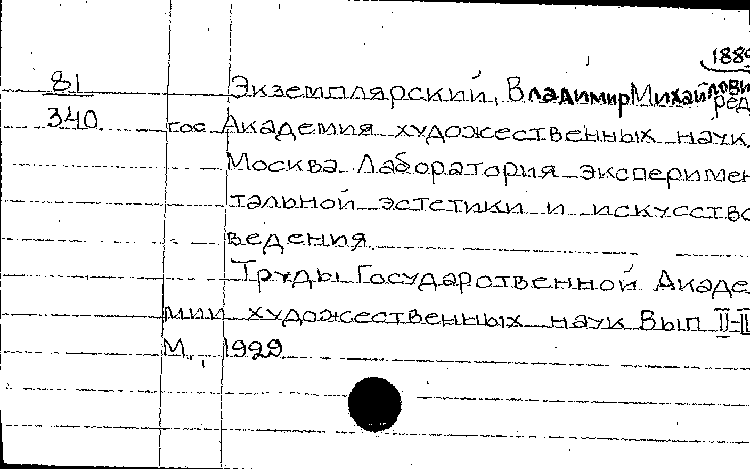 1889
81 Экземплярский, Владимир Михайлови
ред
340 гос. Академия художественных наук.
Москва. Лаборатория эксперимен
тальной эстетики и искусство
ведения
Труды Государственной Акаде
мии художественных наук Вып II-II
М., 1929